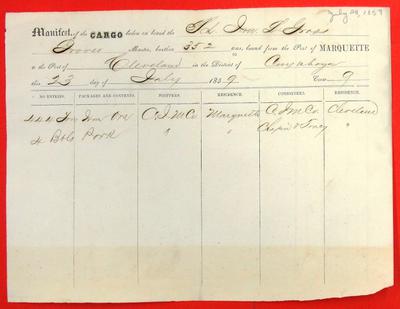 July 23, 1859
Manifest of the CARGO laden on board the Sch. Jno. L. Gross
Grover Master, burthen 352 tons, bound from the Port of MARQUETTE
to the Port of Cleveland in the District of Cuyahoga
this 23 day of July 1859.
NO. ENTRIES. PACKAGES AND CONTENTS. SHIPPERS. RESIDENCE. CONSIGNEES. RESIDENCE.
Iron Ore C. I. M. Co. Marquette C. I. M. Co. Cleveland
4 Bbls Pork " " Chapin "